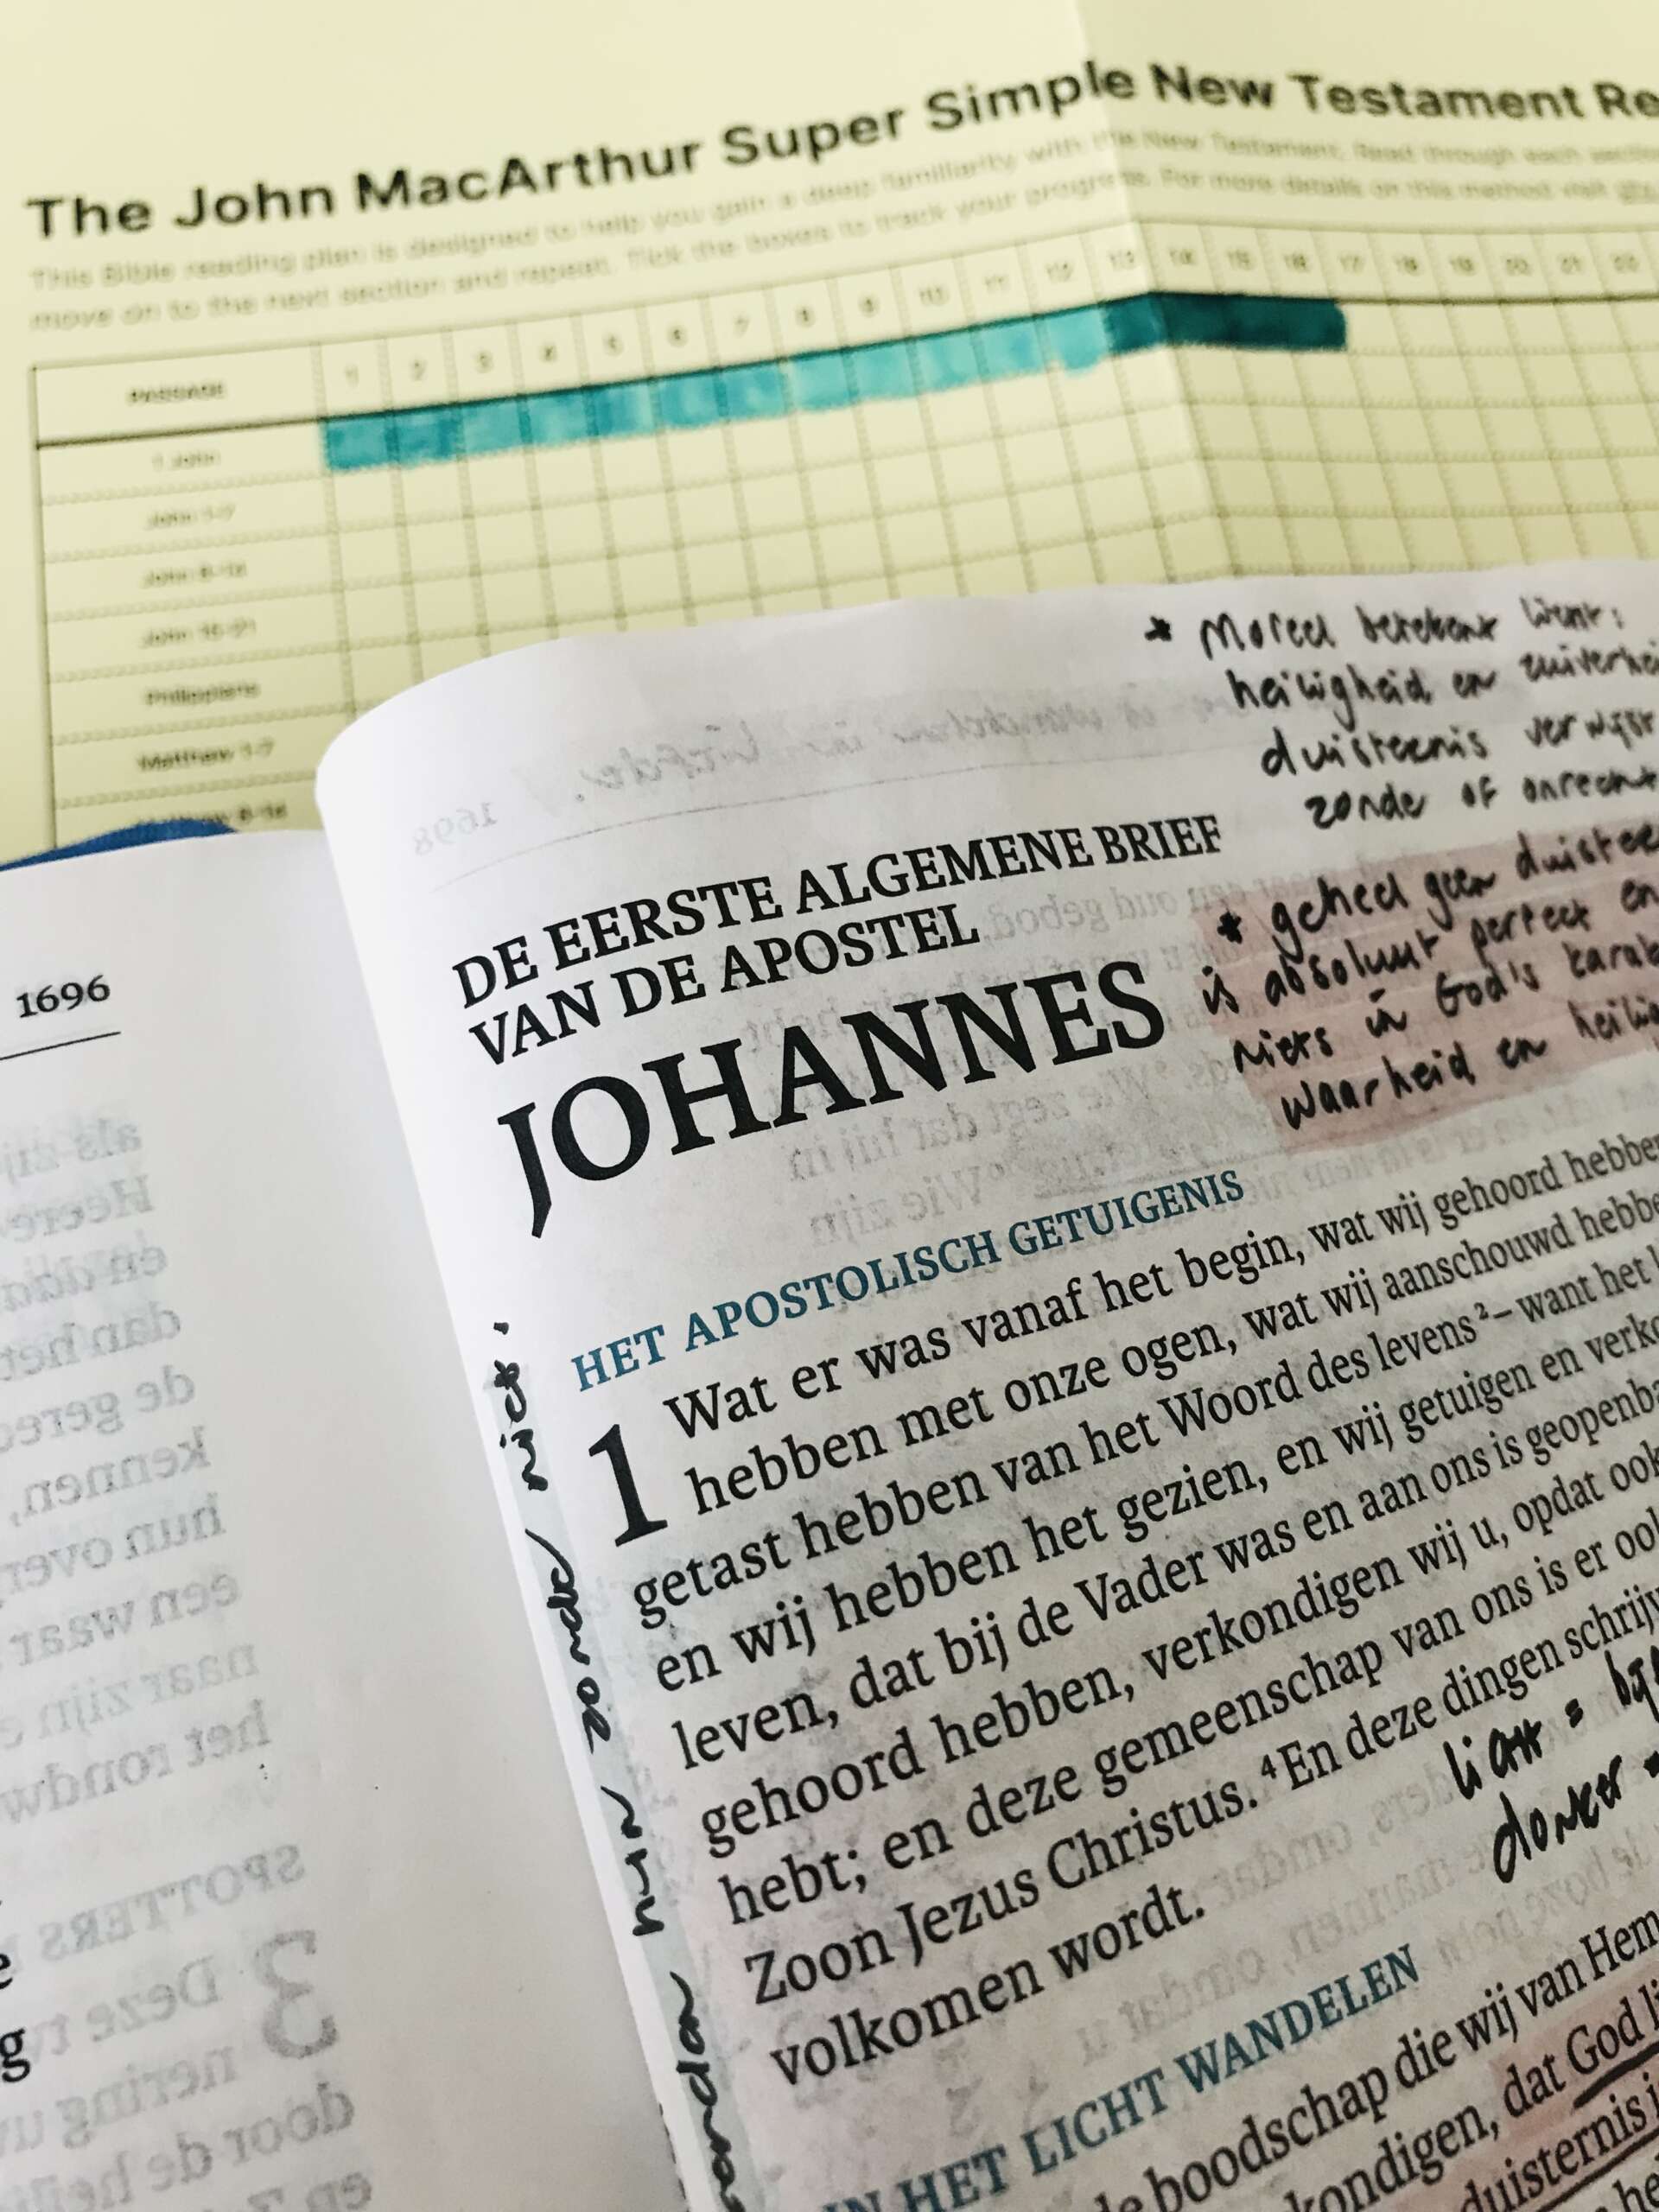 The John MacArthur Super Simple New Testament Re
This Bible reading plan is designed to help you gain a deep familiarity with the New Testament. Read through each section
move on to the next section and repeat. Tick the boxes to track your progress. For more details on this method visit
PASSAGE 1 2 3 4 5 6 7 8 9 10 11 12 13 14 15 16 17 18 19 20 21 22
1 John
John 1-7
John 8-14
John 15-21
Philippians
Matthew 1-7
Matthew 8-14
* Moreel betekent licht:
heiligheid en zuiverhei
duisternis verwijst
zonde of onrecht
* geheel geen duister
is absoluut perfect en
niets in God's karak
waarheid en heilig
1696
DE EERSTE ALGEMENE BRIEF
VAN DE APOSTEL
JOHANNES
HET APOSTOLISCH GETUIGENIS
1 Wat er was vanaf het begin, wat wij gehoord hebben
hebben met onze ogen, wat wij aanschouwd hebbe
getast hebben van het Woord des levens² – want het l
en wij hebben het gezien, en wij getuigen en verko
leven, dat bij de Vader was en aan ons is geopenba
gehoord hebben, verkondigen wij u, opdat ook
hebt; en deze gemeenschap van ons is er ool
Zoon Jezus Christus. ⁴En deze dingen schrijv
volkomen wordt.
hun zonde niet.
licht =
donker =
IN HET LICHT WANDELEN
boodschap die wij van Hem
kondigen, dat God li
duisternis i